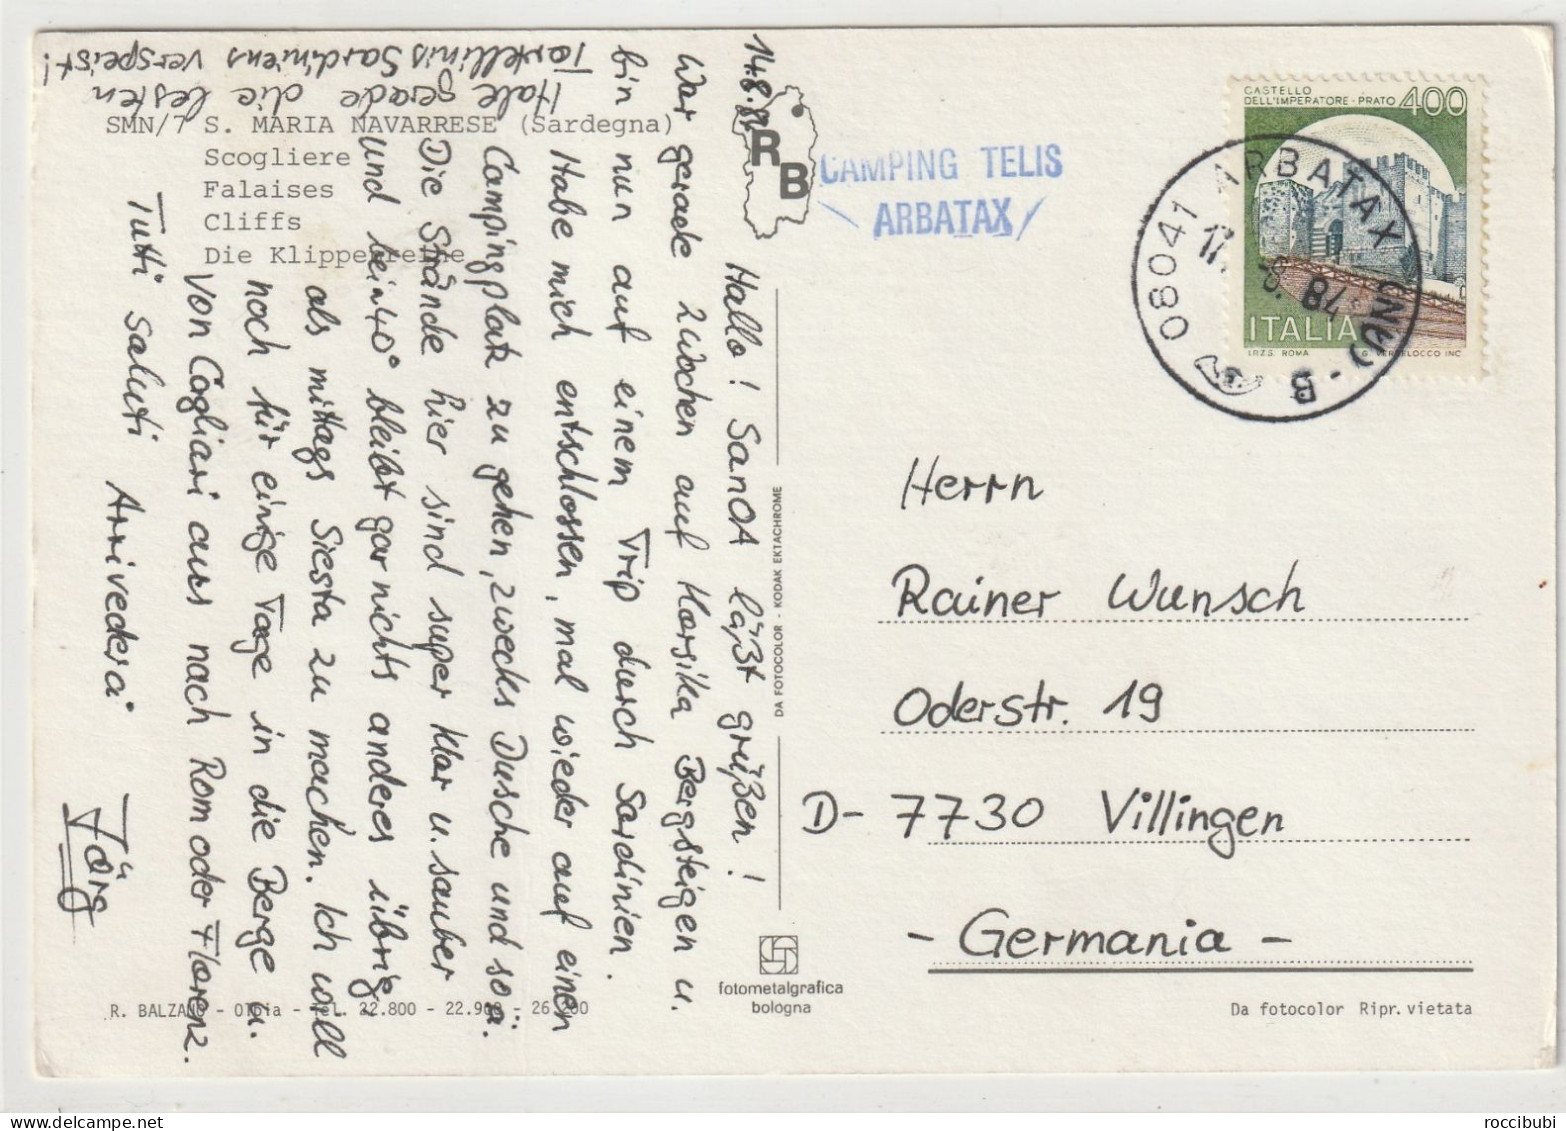 14.8.84
Hallo! SanOA läßt grüßen!
War gerade 2 Wochen auf Korsika Bergsteigen u.
bin nun auf einem Trip durch Sardinien.
Habe mich entschlossen, mal wieder auf einen
Campingplatz zu gehen, zwecks Dusche und so.
Die Strände hier sind super klar u. sauber
und bei 40° bleibt gar nichts anderes übrig
als mittags Siesta zu machen. Ich will
noch für einige Tage in die Berge u.
von Cagliari aus nach Rom oder Florenz.
Tutti Saluti Arrivederci
Jörg
Habe gerade die besten
Tortellinis Sardiniens verspeist!
SMN/7 S. MARIA NAVARRESE (Sardegna)
Scogliere
Falaises
Cliffs
Die Klippenreihe
R. BALZANO - Olbia - Tel. 22.800 - 22.900 - 26.200
RB
CAMPING TELIS
ARBATAX
DA FOTOCOLOR - KODAK EKTACHROME
fotometalgrafica
bologna
CASTELLO
DELL'IMPERATORE - PRATO 400
ITALIA
I.P.Z.S. ROMA G. VERDELOCCO INC.
08041 ARBATAX (NU) - B
17. -8. 84
Herrn
Rainer Wunsch
Oderstr. 19
D- 7730 Villingen
- Germania -
Da fotocolor Ripr. vietata
roccibubi